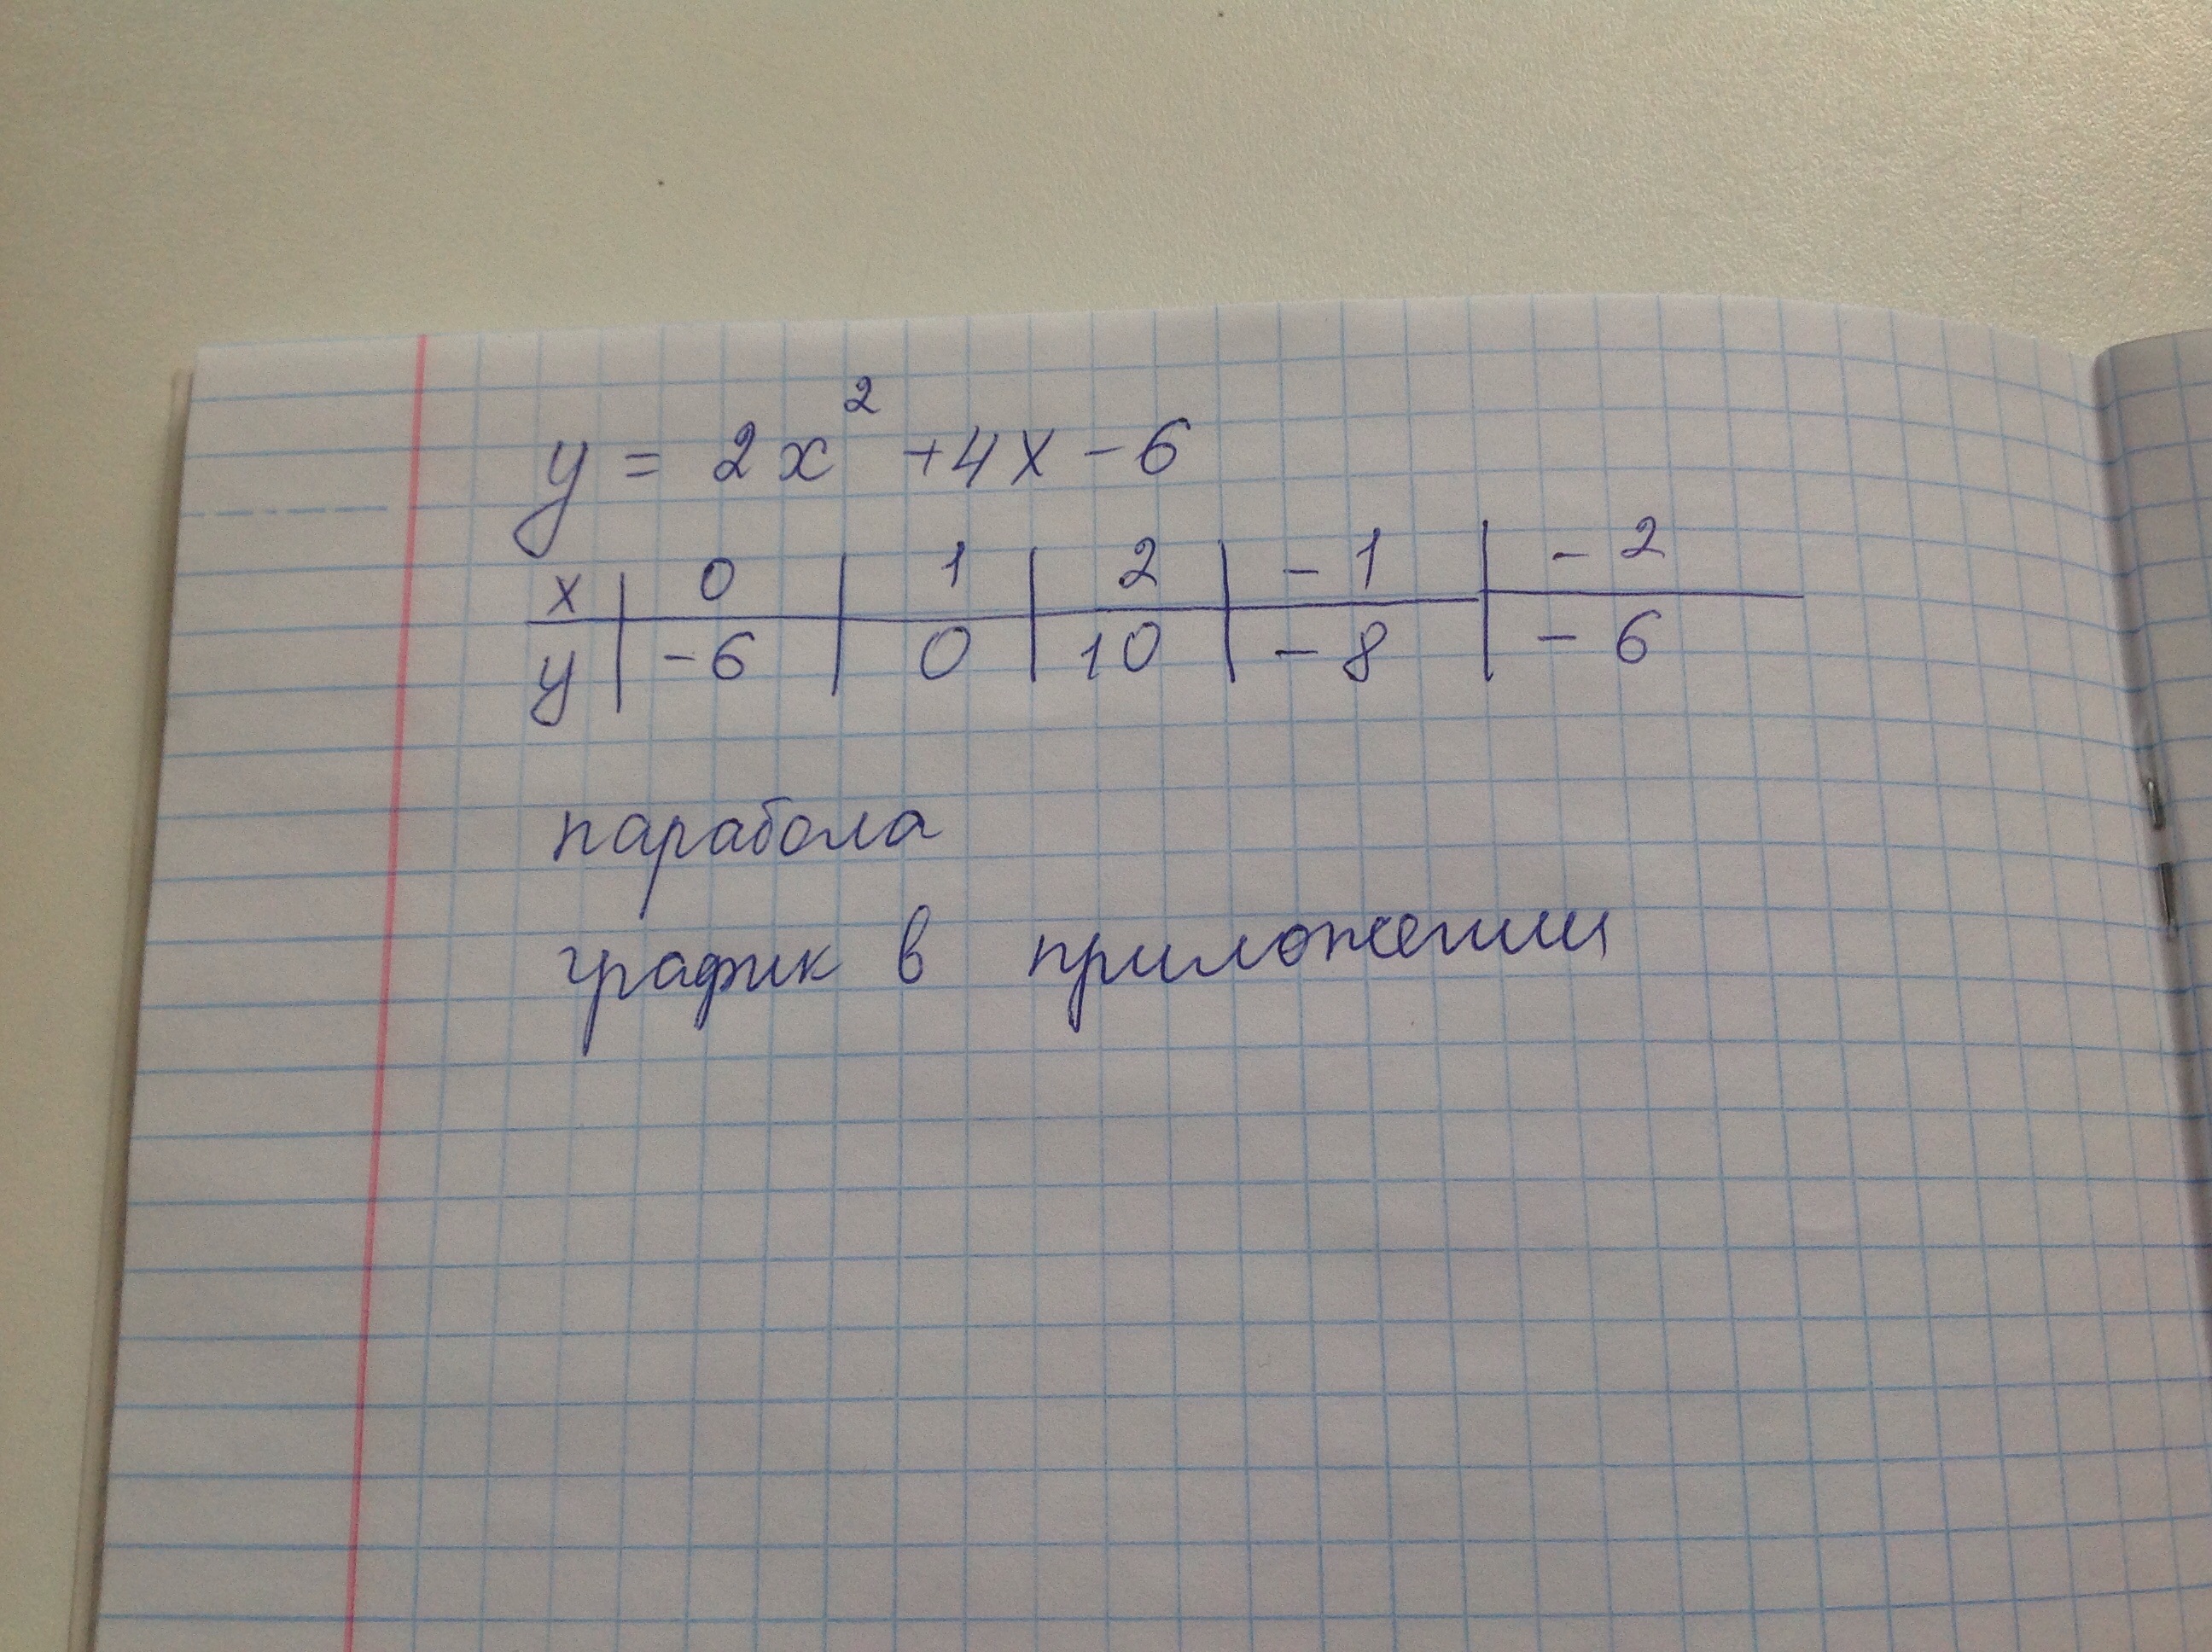 y = 2x² +4x -6
x | 0 | 1 | 2 | -1 | -2
y | -6 | 0 | 10 | -8 | -6
парабола
график в приложении